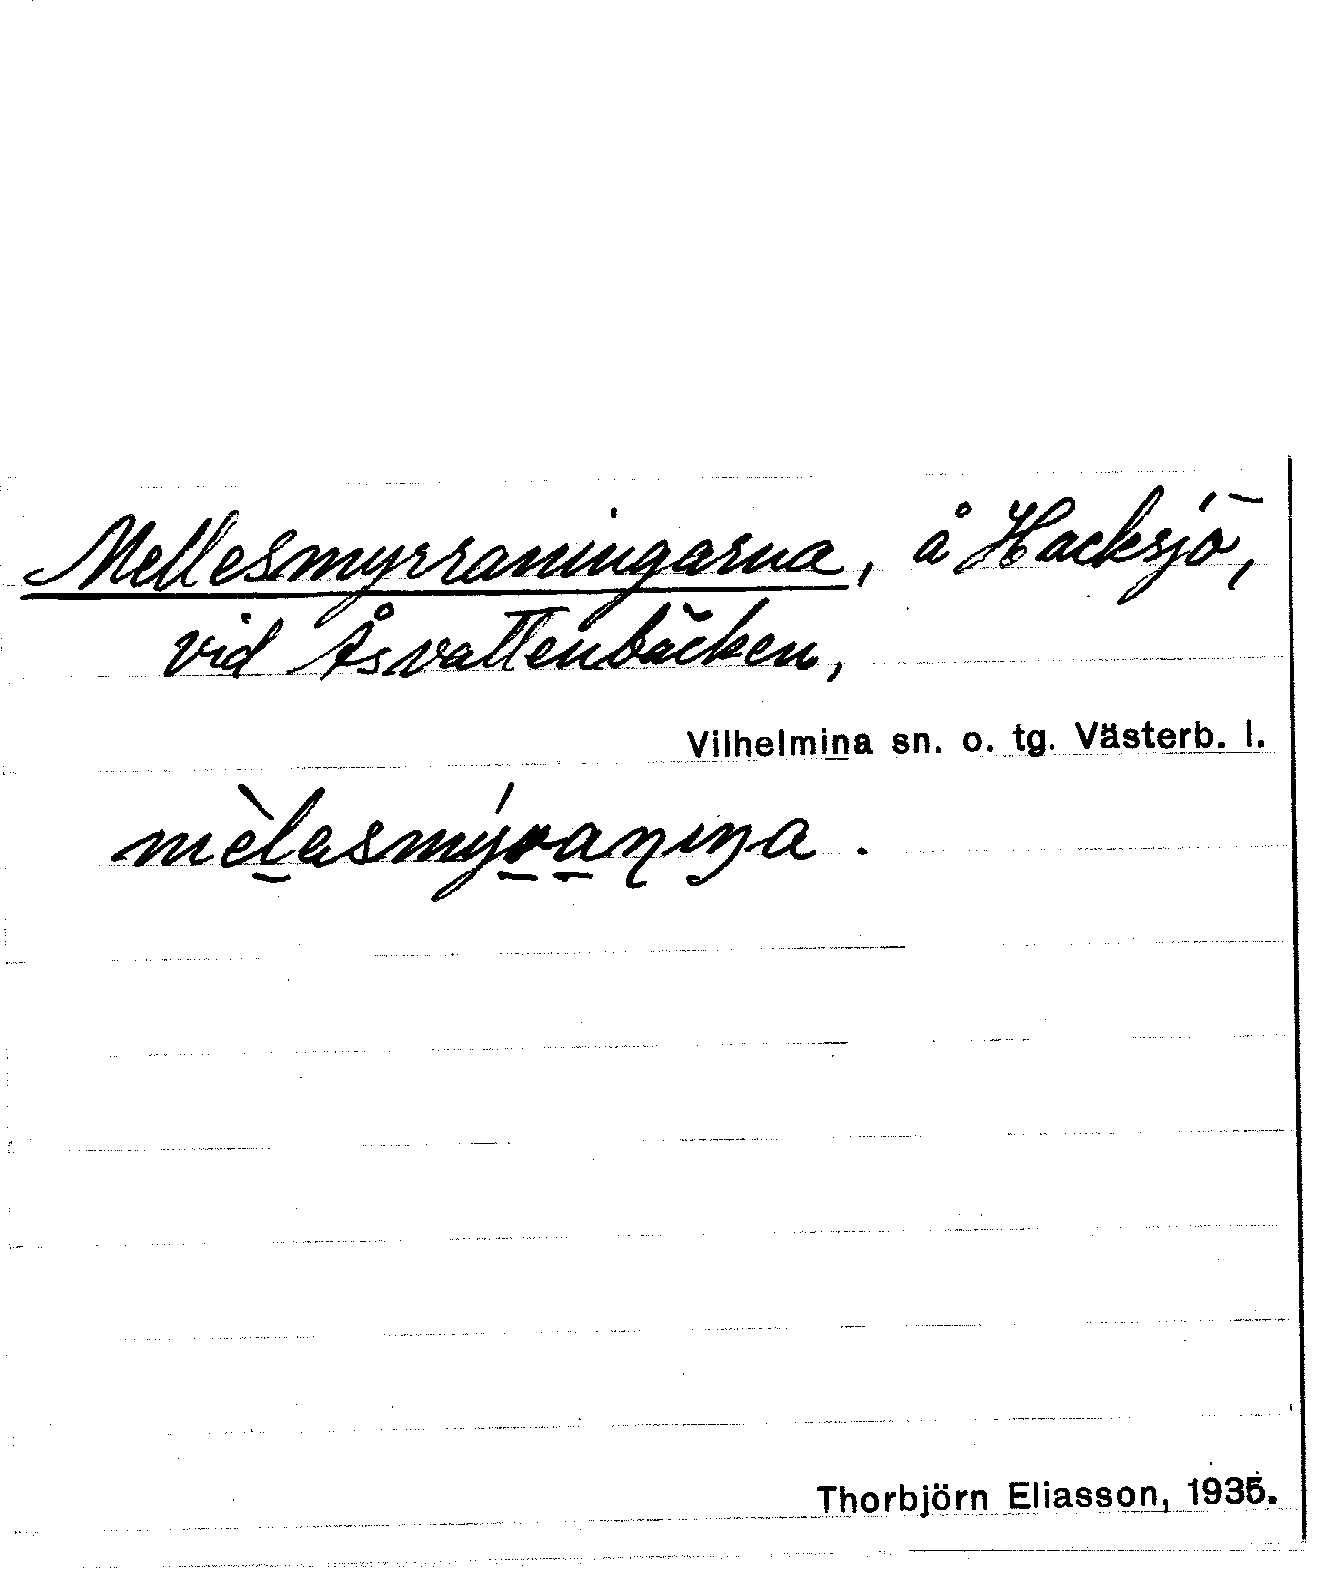 Mellesmyrraningarna, å Hacksjö,
vid Åsvattenbäcken,
Vilhelmina sn. o. tg. Västerb. l.
mèlasmýranıŋa.
Thorbjörn Eliasson, 1935.